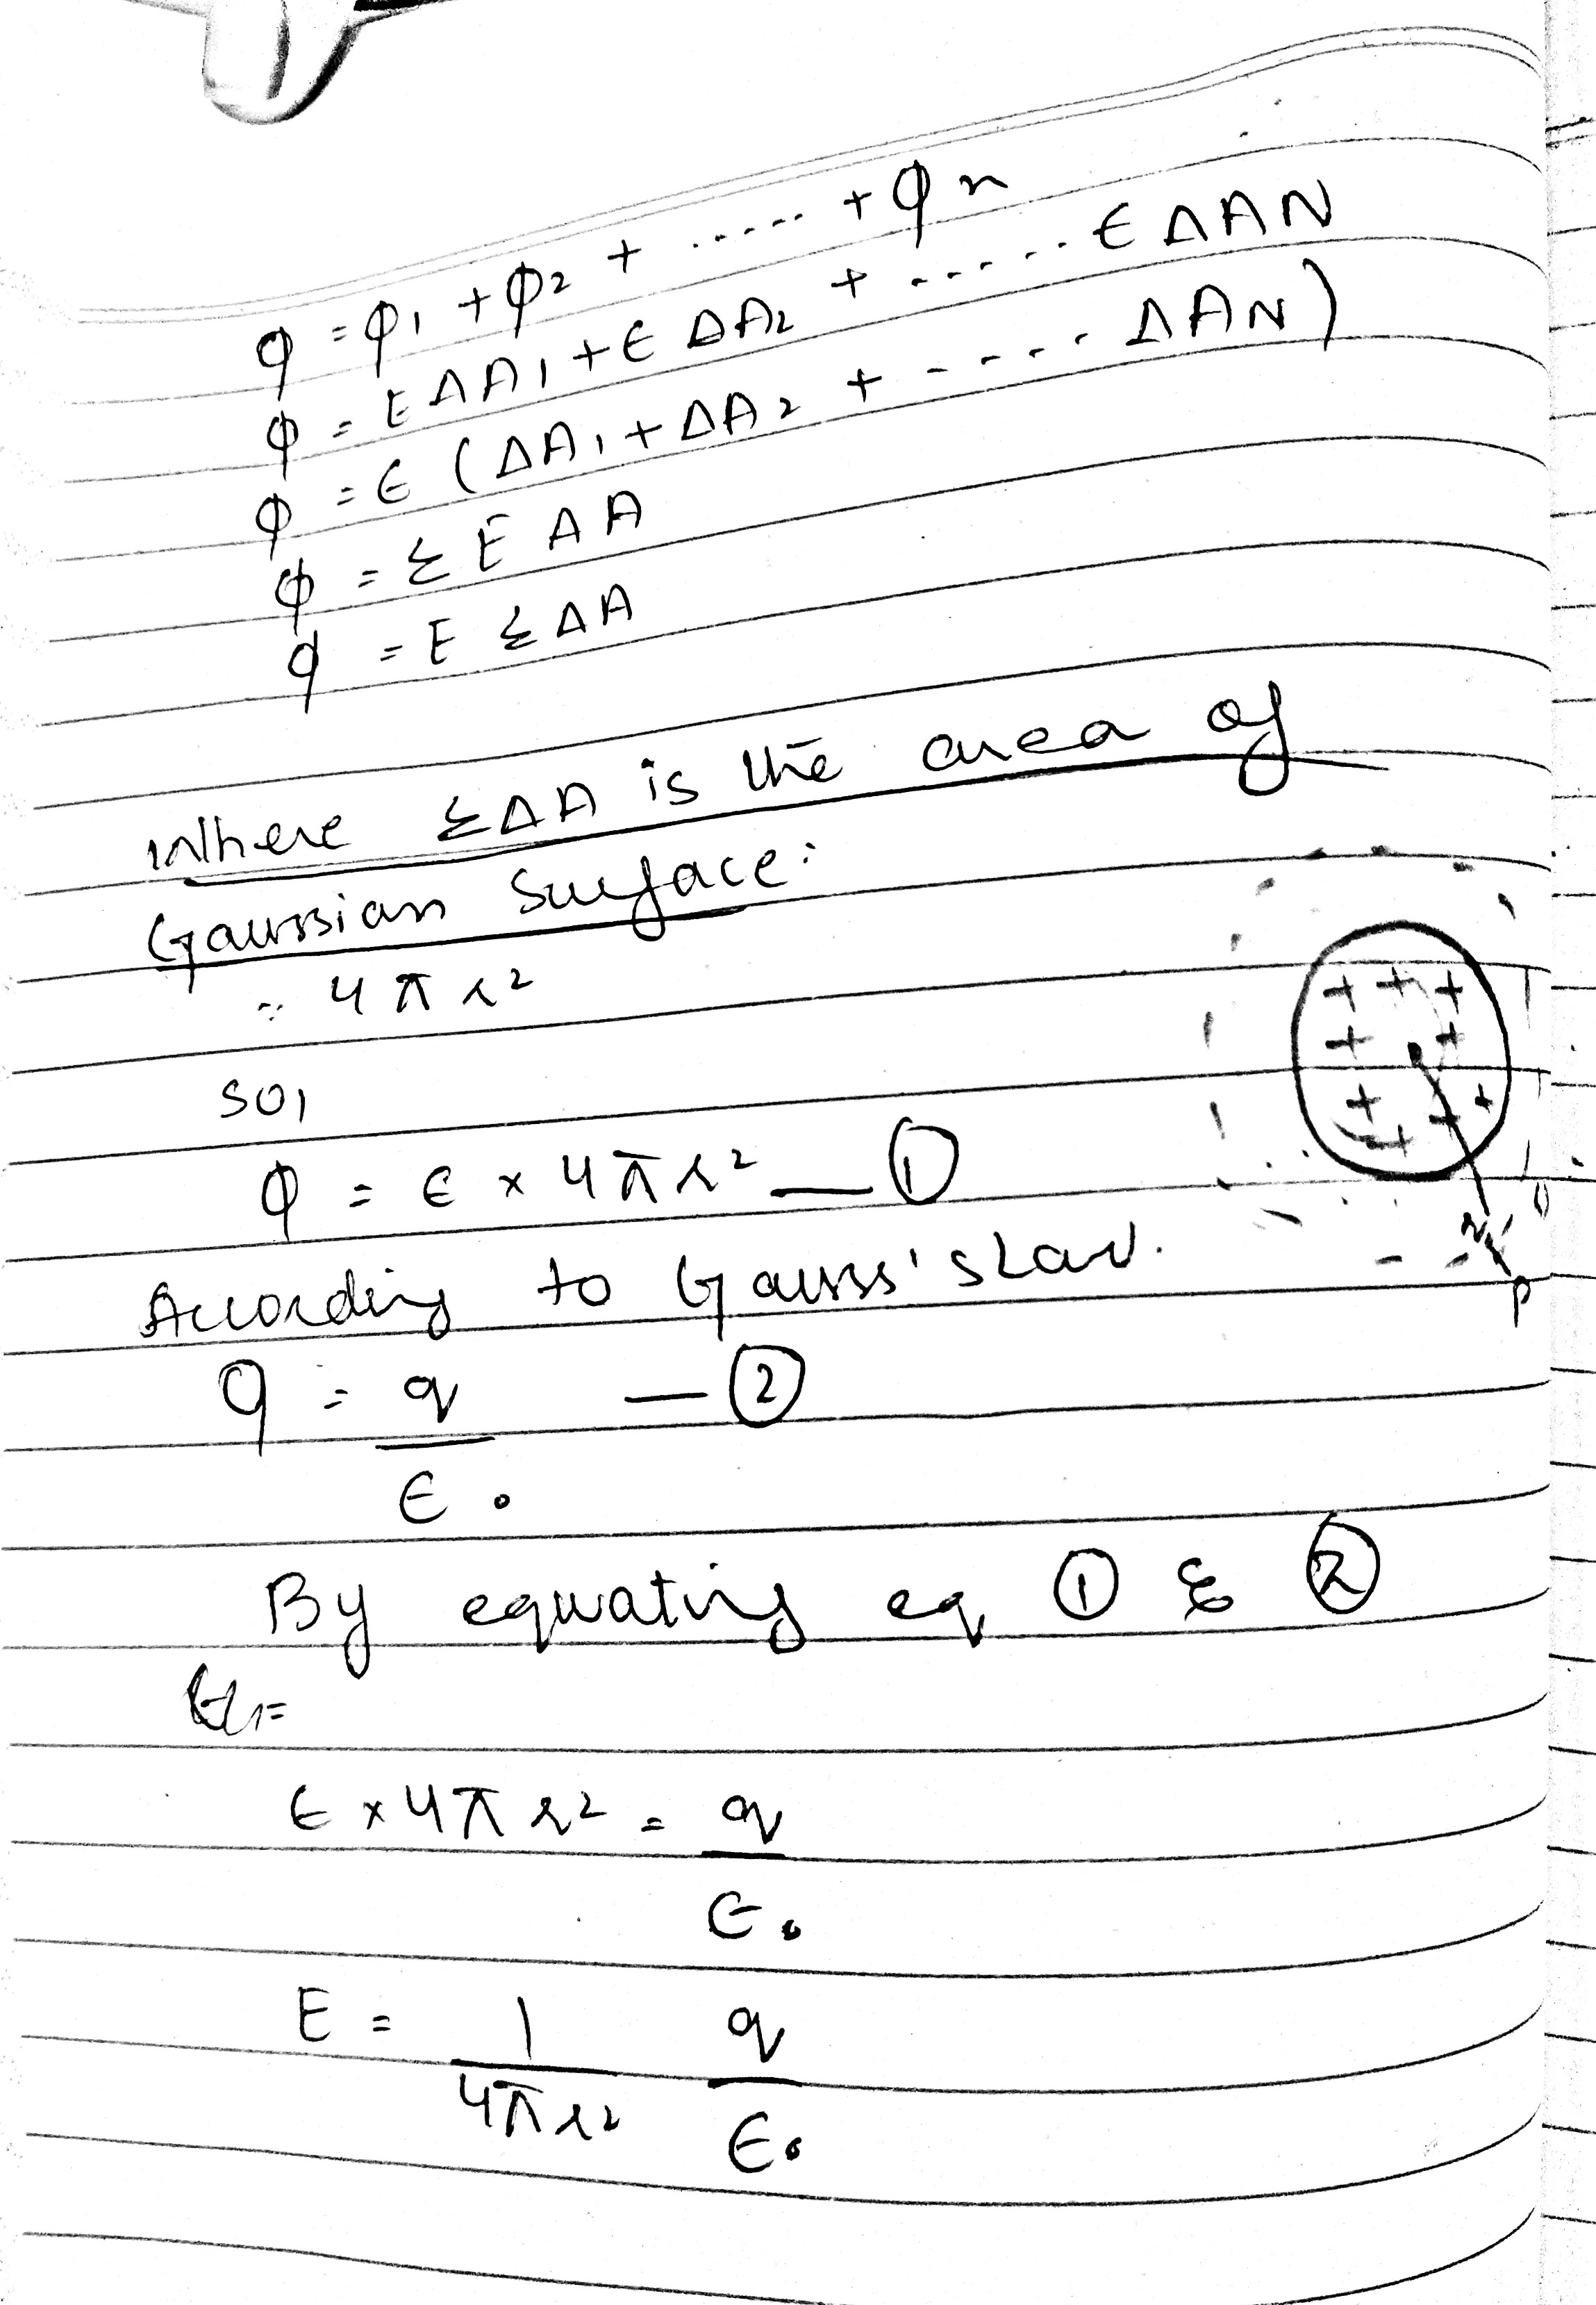 φ = φ1 + φ2 + ..... + φn
φ = E ΔA1 + E ΔA2 + ...... E ΔAN
φ = E (ΔA1 + ΔA2 + ..... ΔAN)
φ = Σ E ΔA
φ = E ΣΔA
Where ΣΔA is the area of
Gaussian Surface:
= 4πr²
so,
φ = E × 4πr² — ①
According to Gauss's Law.
φ = q/ε₀ — ②
By equating eq ① & ②
E × 4πr² = q/ε₀
E = 1/4πr² q/ε₀
+ + +
+ +
+ + +
+
r
P